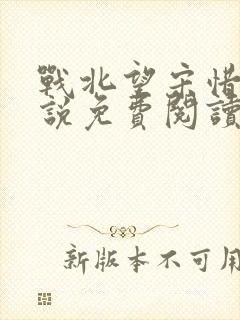 戰北望宋惜
說免費閱讀
新版本不可用